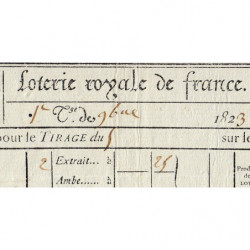 Loterie royale de france.
1er Tge de 9bre 1823
pour le TIRAGE du 5 sur le
2 Extrait..... à 25
Ambe.....